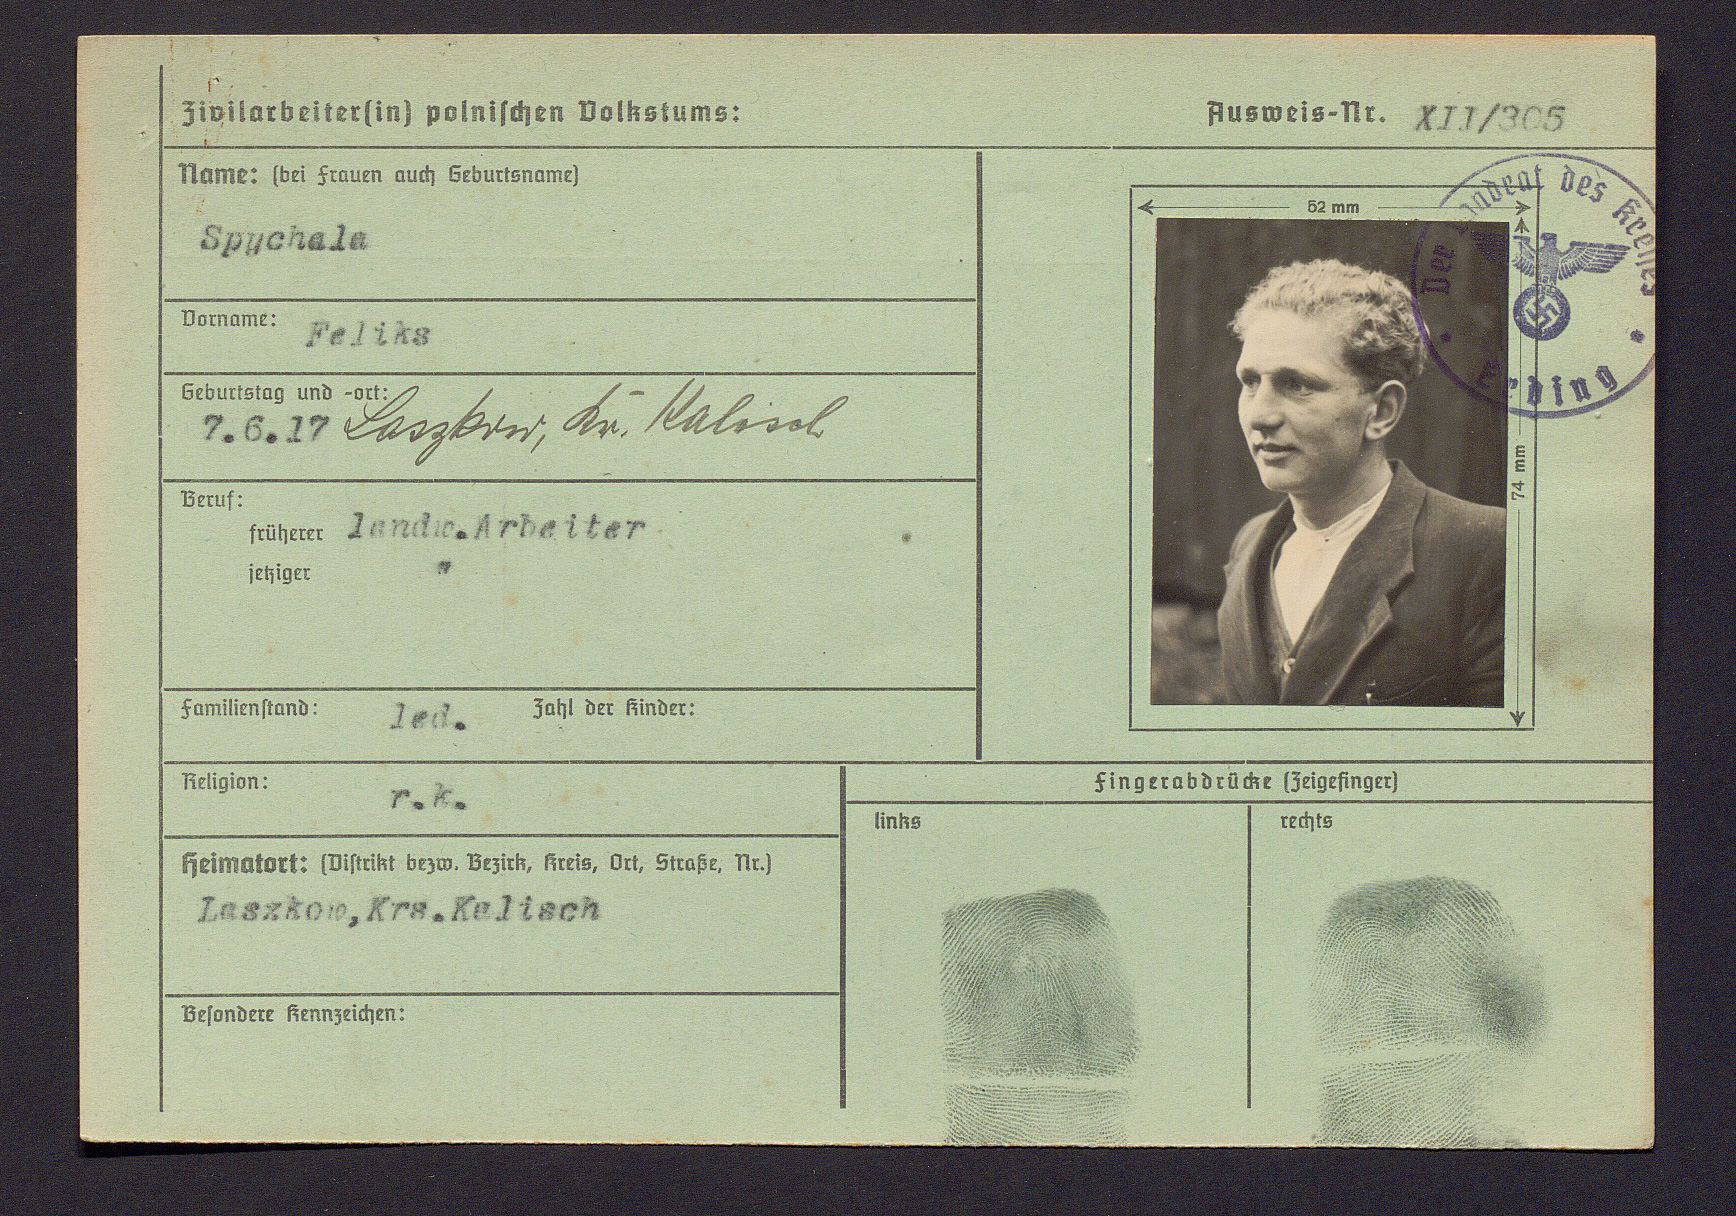 Zivilarbeiter(in) polnischen Volkstums:
Ausweis-Nr. XII/305
Name: (bei Frauen auch Geburtsname)
Spychala
Vorname: Feliks
Geburtstag und -ort:
7.6.17 Laszkow, Kr. Kalisch
Beruf:
früherer landw.Arbeiter
jetziger "
Familienstand: led. Zahl der Kinder:
Religion: r.k.
Heimatort: (Distrikt bezw. Bezirk, Kreis, Ort, Straße, Nr.)
Laszkow,Krs.Kalisch
Besondere Kennzeichen:
52 mm
74 mm
Der Landrat des Kreises
Erding
Fingerabdrücke (Zeigefinger)
links
rechts